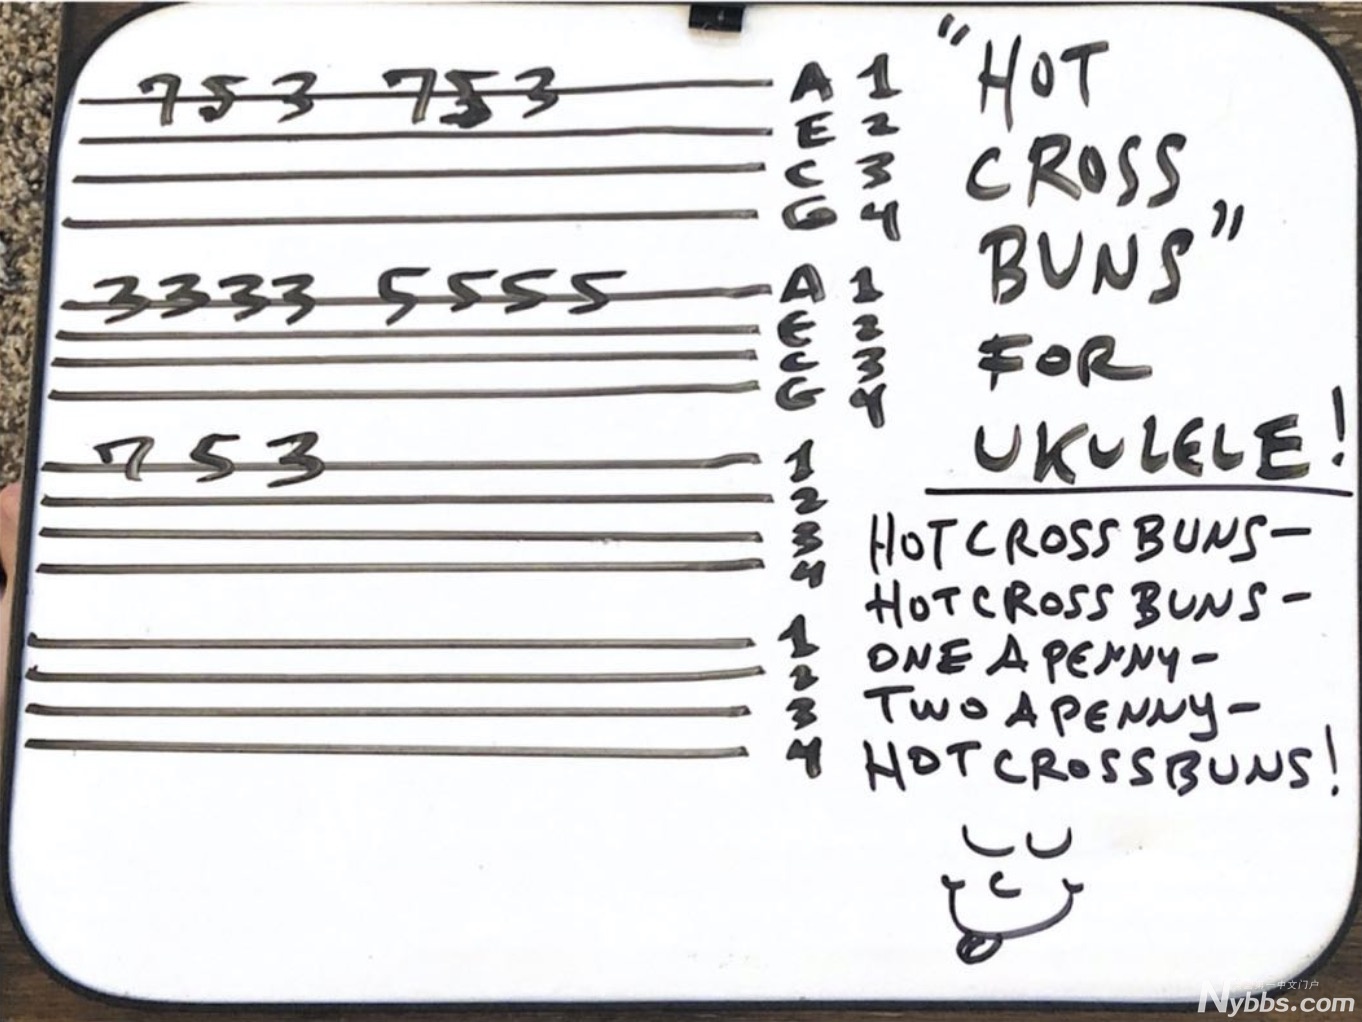 7 5 3 7 5 3 A 1
E 2
C 3
G 4
3 3 3 3 5 5 5 5 A 1
E 2
C 3
G 4
7 5 3 1
2
3
4
1
2
3
4
"HOT
CROSS
BUNS"
FOR
UKULELE!
HOT CROSS BUNS-
HOT CROSS BUNS-
ONE A PENNY-
TWO A PENNY-
HOT CROSS BUNS!
中文门户
Nybbs.com